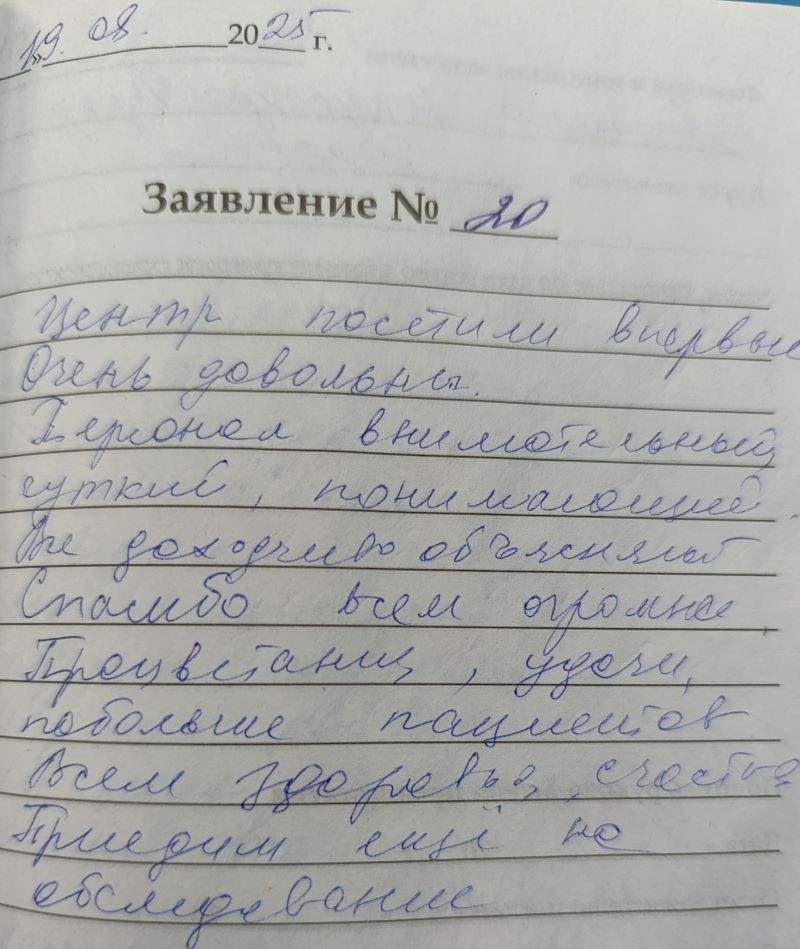 19. 08. 2025 г.
Заявление № 20
Центр посетили впервые
Очень довольны.
Персонал внимательный
чуткий, понимающий.
Все доходчиво объясняют
Спасибо всем огромное,
Процветания, удачи,
побольше пациентов
Всем здоровья, счастья
Приедим ещё на
обследование